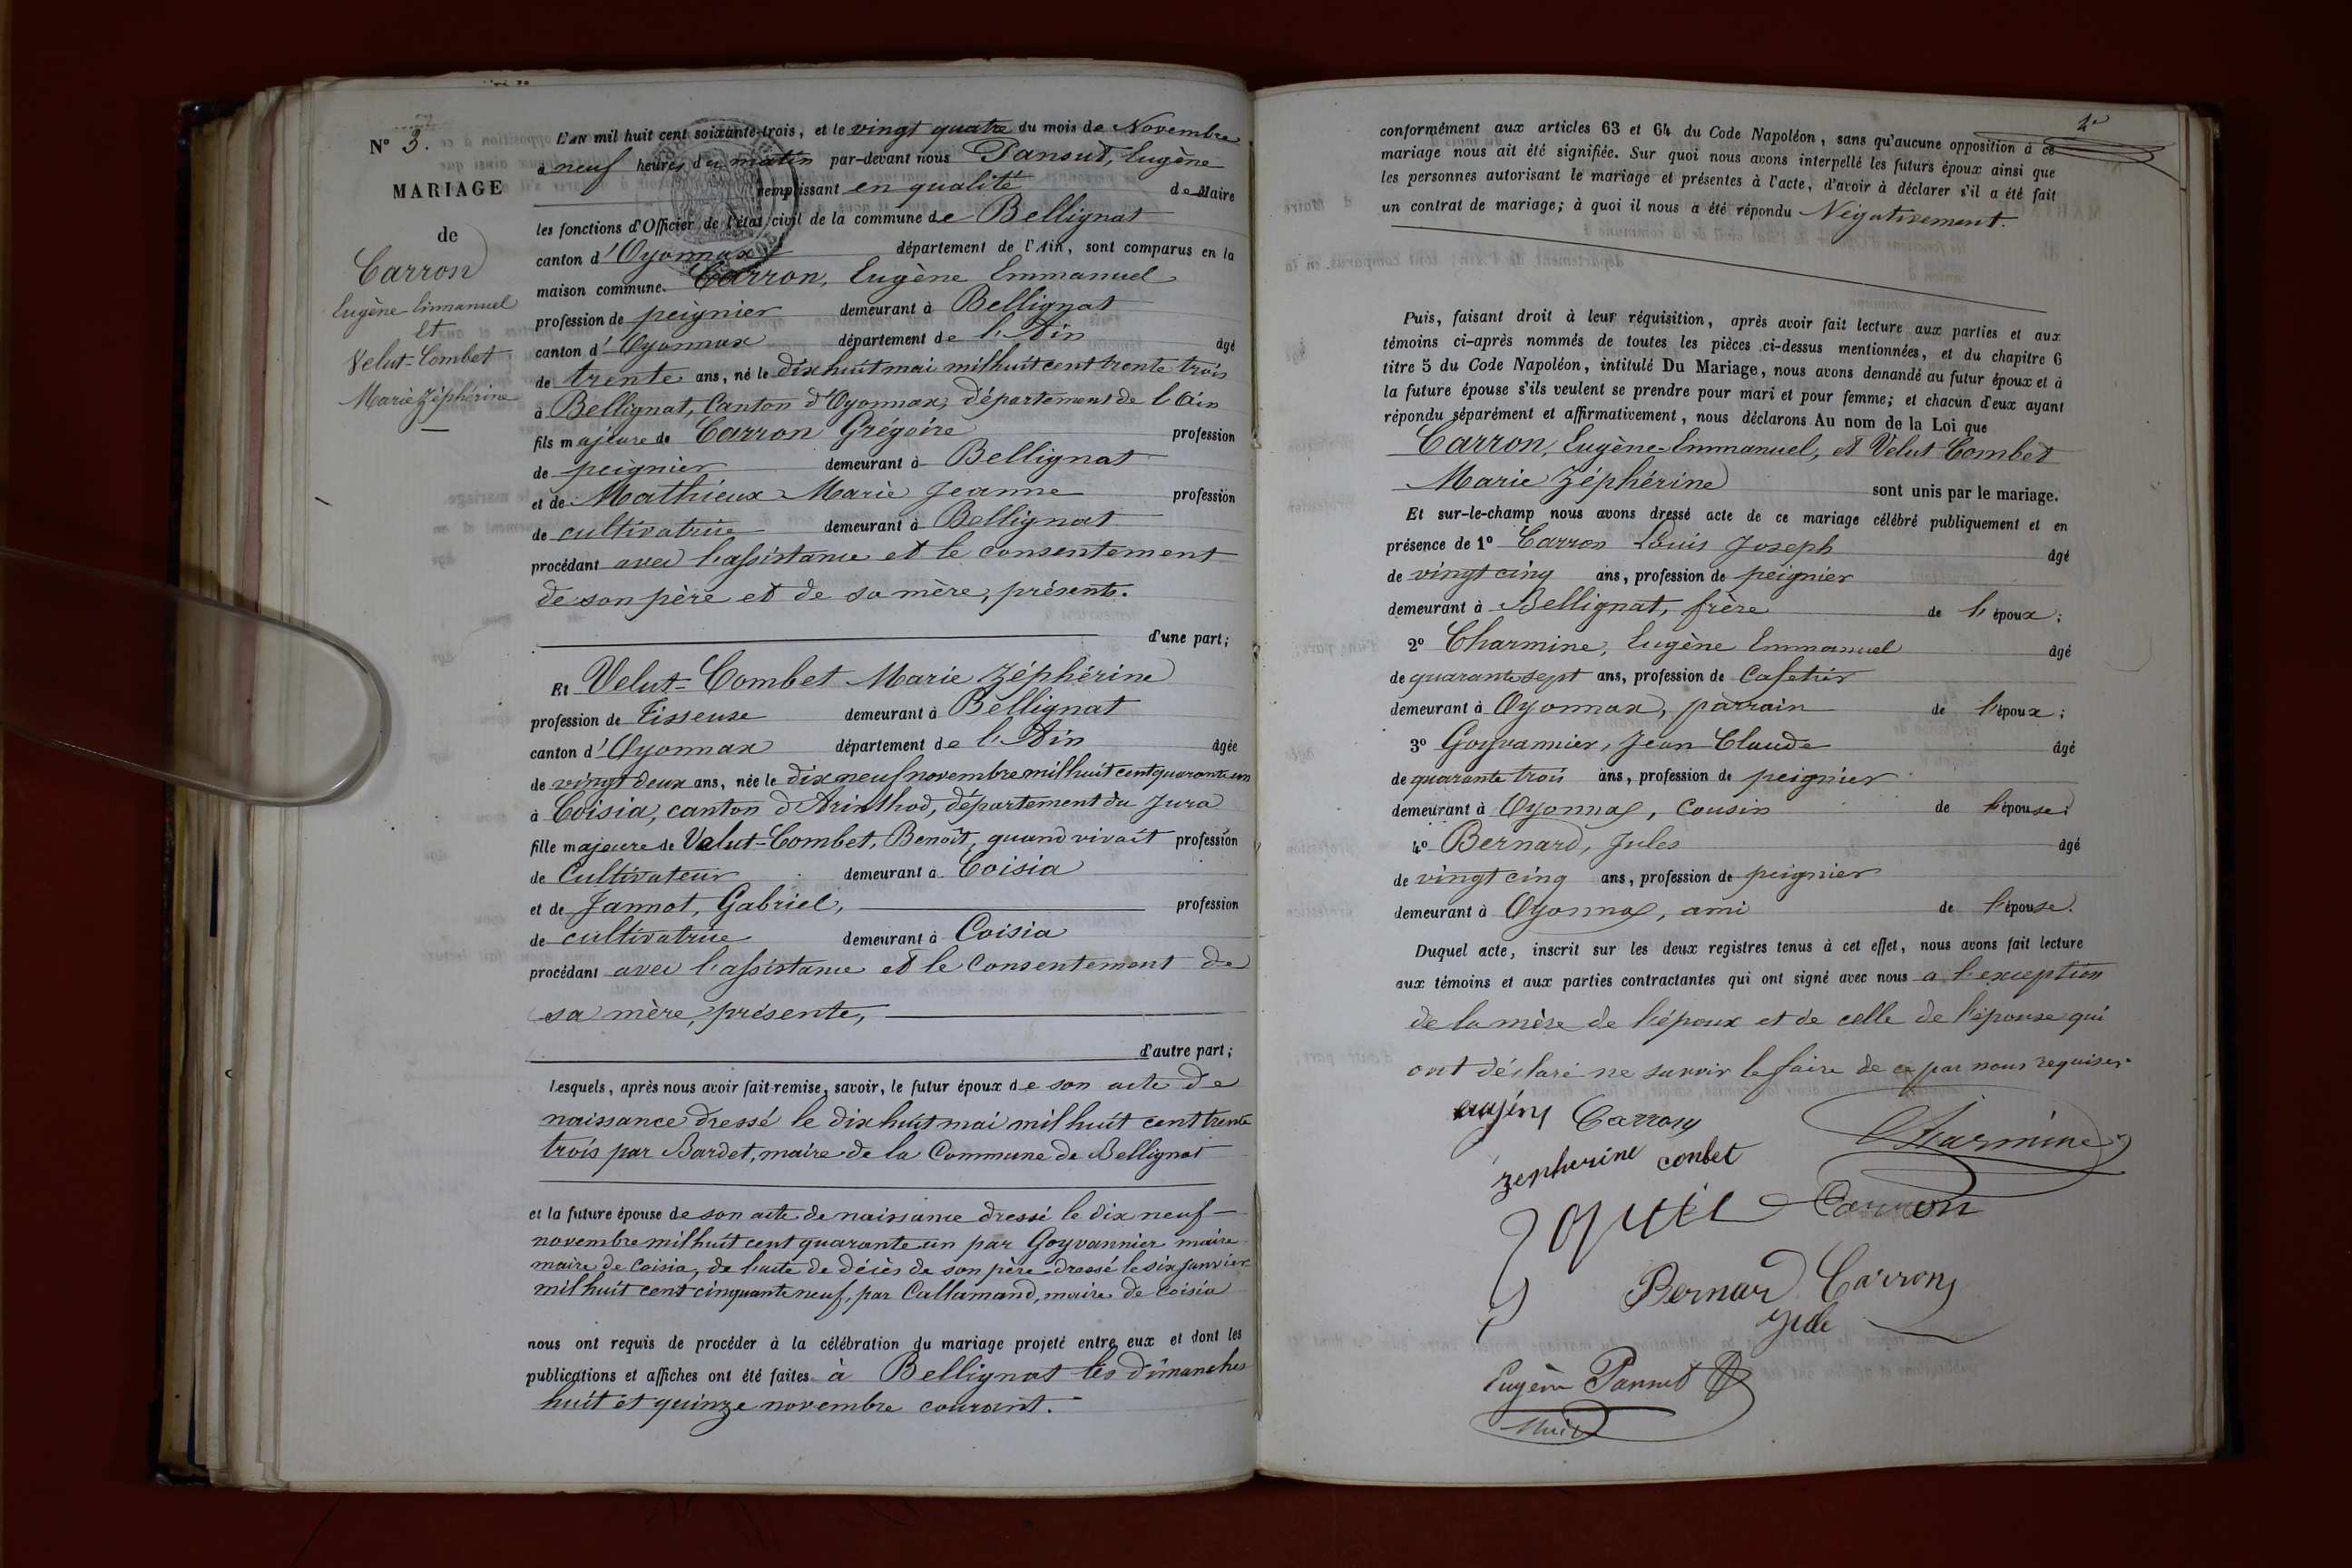 N° 3.
MARIAGE
de
Carron
Eugène Emmanuel
Et
Velut-Combet
Marie Zéphérine
L'AN mil huit cent soixante-trois, et le vingt quatre du mois de Novembre
à neuf heures du matin par-devant nous Pansut, Eugène
remplissant en qualité de Maire
les fonctions d'Officier de l'état civil de la commune de Bellignat
canton d'Oyonnax département de l'Ain, sont comparus en la
maison commune. Carron, Eugène Emmanuel
profession de peignier demeurant à Bellignat
canton d'Oyonnax département de l'Ain âgé
de trente ans, né le dix huit mai mil huit cent trente trois
à Bellignat, Canton d'Oyonnax, département de l'Ain
fils majeure de Carron Grégoire profession
de peignier demeurant à Bellignat
et de Mathieux Marie Jeanne profession
de cultivatrice demeurant à Bellignat
procédant avec l'assistance et le consentement
de son père et de sa mère, présents.
d'une part;
Et Velut-Combet Marie Zéphérine
profession de Tisseuse demeurant à Bellignat
canton d'Oyonnax département de l'Ain âgée
de vingt deux ans, née le dix neuf novembre mil huit cent quarante un
à Coisia, canton d'Arinthod, département du Jura
fille majeure de Velut-Combet, Benoît, quand vivait profession
de Cultivateur demeurant à Coisia
et de Jannot, Gabriel, profession
de cultivatrice demeurant à Coisia
procédant avec l'assistance et le Consentement de
sa mère, présente,
d'autre part;
Lesquels, après nous avoir fait remise, savoir, le futur époux de son acte de
naissance dressé le dix huit mai mil huit cent trente
trois par Bardet, maire de la Commune de Bellignat
et la future épouse de son acte de naissance dressé le dix neuf
novembre mil huit cent quarante un par Goyvannier maire
maire de Coisia, de l'acte de décès de son père dressé le six janvier
mil huit cent cinquante neuf, par Callamand, maire de Coisia
nous ont requis de procéder à la célébration du mariage projeté entre eux et dont les
publications et affiches ont été faites à Bellignat les dimanches
huit et quinze novembre courant.
conformément aux articles 63 et 64 du Code Napoléon, sans qu'aucune opposition à ce
mariage nous ait été signifiée. Sur quoi nous avons interpellé les futurs époux ainsi que
les personnes autorisant le mariage et présentes à l'acte, d'avoir à déclarer s'il a été fait
un contrat de mariage; à quoi il nous a été répondu Négativement.
Puis, faisant droit à leur réquisition, après avoir fait lecture aux parties et aux
témoins ci-après nommés de toutes les pièces ci-dessus mentionnées, et du chapitre 6
titre 5 du Code Napoléon, intitulé Du Mariage, nous avons demandé au futur époux et à
la future épouse s'ils veulent se prendre pour mari et pour femme; et chacun d'eux ayant
répondu séparément et affirmativement, nous déclarons Au nom de la Loi que
Carron, Eugène-Emmanuel, et Velut-Combet
Marie Zéphérine sont unis par le mariage.
Et sur-le-champ nous avons dressé acte de ce mariage célébré publiquement et en
présence de 1° Carron Louis Joseph âgé
de vingt cinq ans, profession de peignier
demeurant à Bellignat, frère de l'époux;
2° Charmine, Eugène Emmanuel âgé
de quarante sept ans, profession de Cafetier
demeurant à Oyonnax, parrain de l'époux;
3° Goyvannier, Jean Claude âgé
de quarante trois ans, profession de peignier
demeurant à Oyonnax, Cousin de l'épouse;
4° Bernard, Jules âgé
de vingt cinq ans, profession de peignier
demeurant à Oyonnax, ami de l'épouse.
Duquel acte, inscrit sur les deux registres tenus à cet effet, nous avons fait lecture
aux témoins et aux parties contractantes qui ont signé avec nous a l'exception
de la mère de l'époux et de celle de l'épouse qui
ont déclaré ne savoir le faire de ce par nous requises.
Carron
Charmine
zepherine conbet
Carron
Bernard Carron
Eugène Pansut